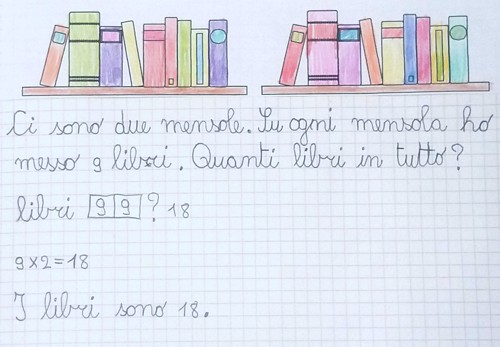 Ci sono due mensole. Su ogni mensola ho
messo 9 libri. Quanti libri in tutto?
libri 9 9 ? 18
9×2=18
I libri sono 18.